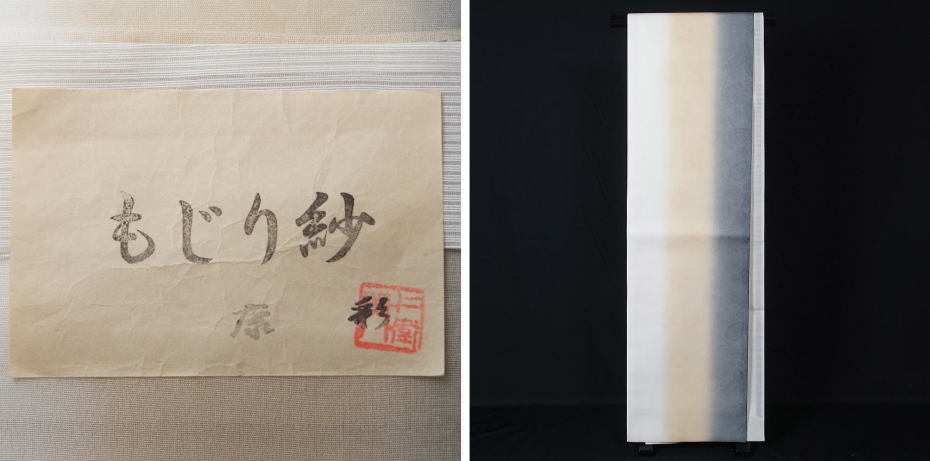 もじり紗
京彩